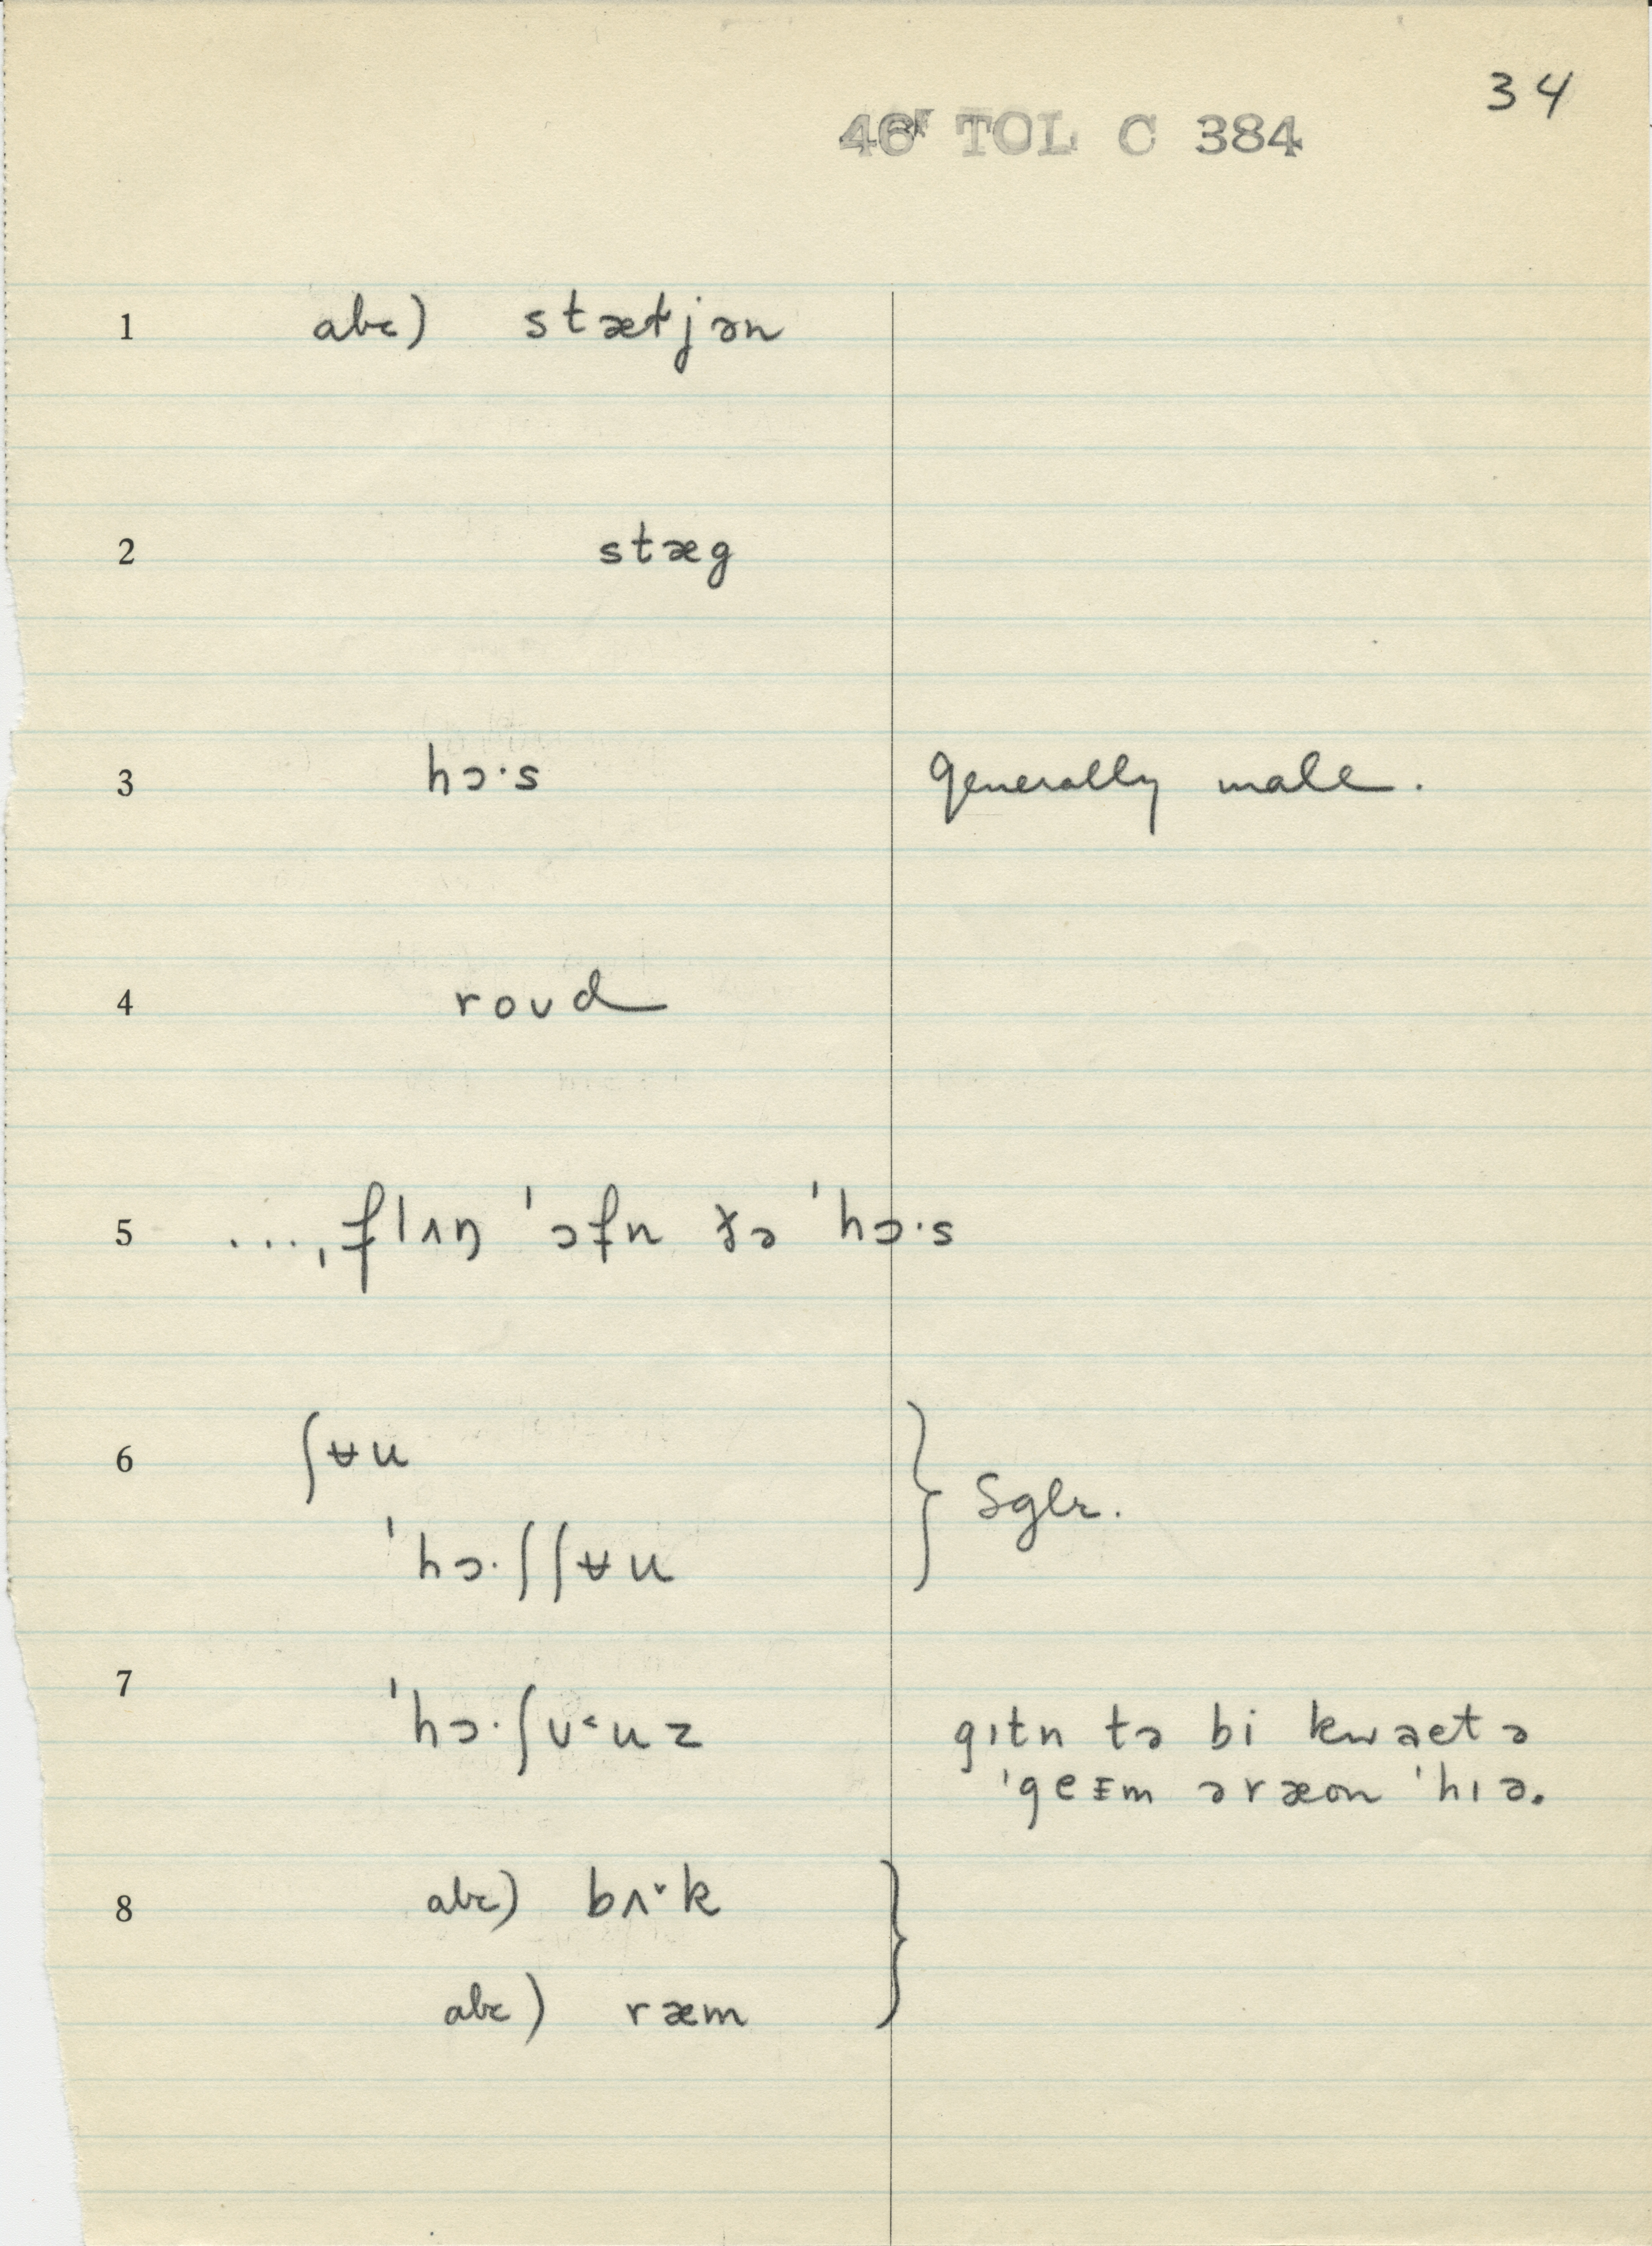 34
46F TOL C 384
1 abc) stætjən
2 stæg
3 hɔ·s generally male.
4 roʊd
5 ...,flʌŋ 'ɔfn ðə 'hɔ·s
6 ʃʉu } Sglr.
'hɔ·ʃʃʉu
7 'hɔ·ʃʊ˂uz gɪtn tə bi kwaetə
'geɪm əræon 'hɪə.
8 abc) bʌ˅k }
abc) ræm